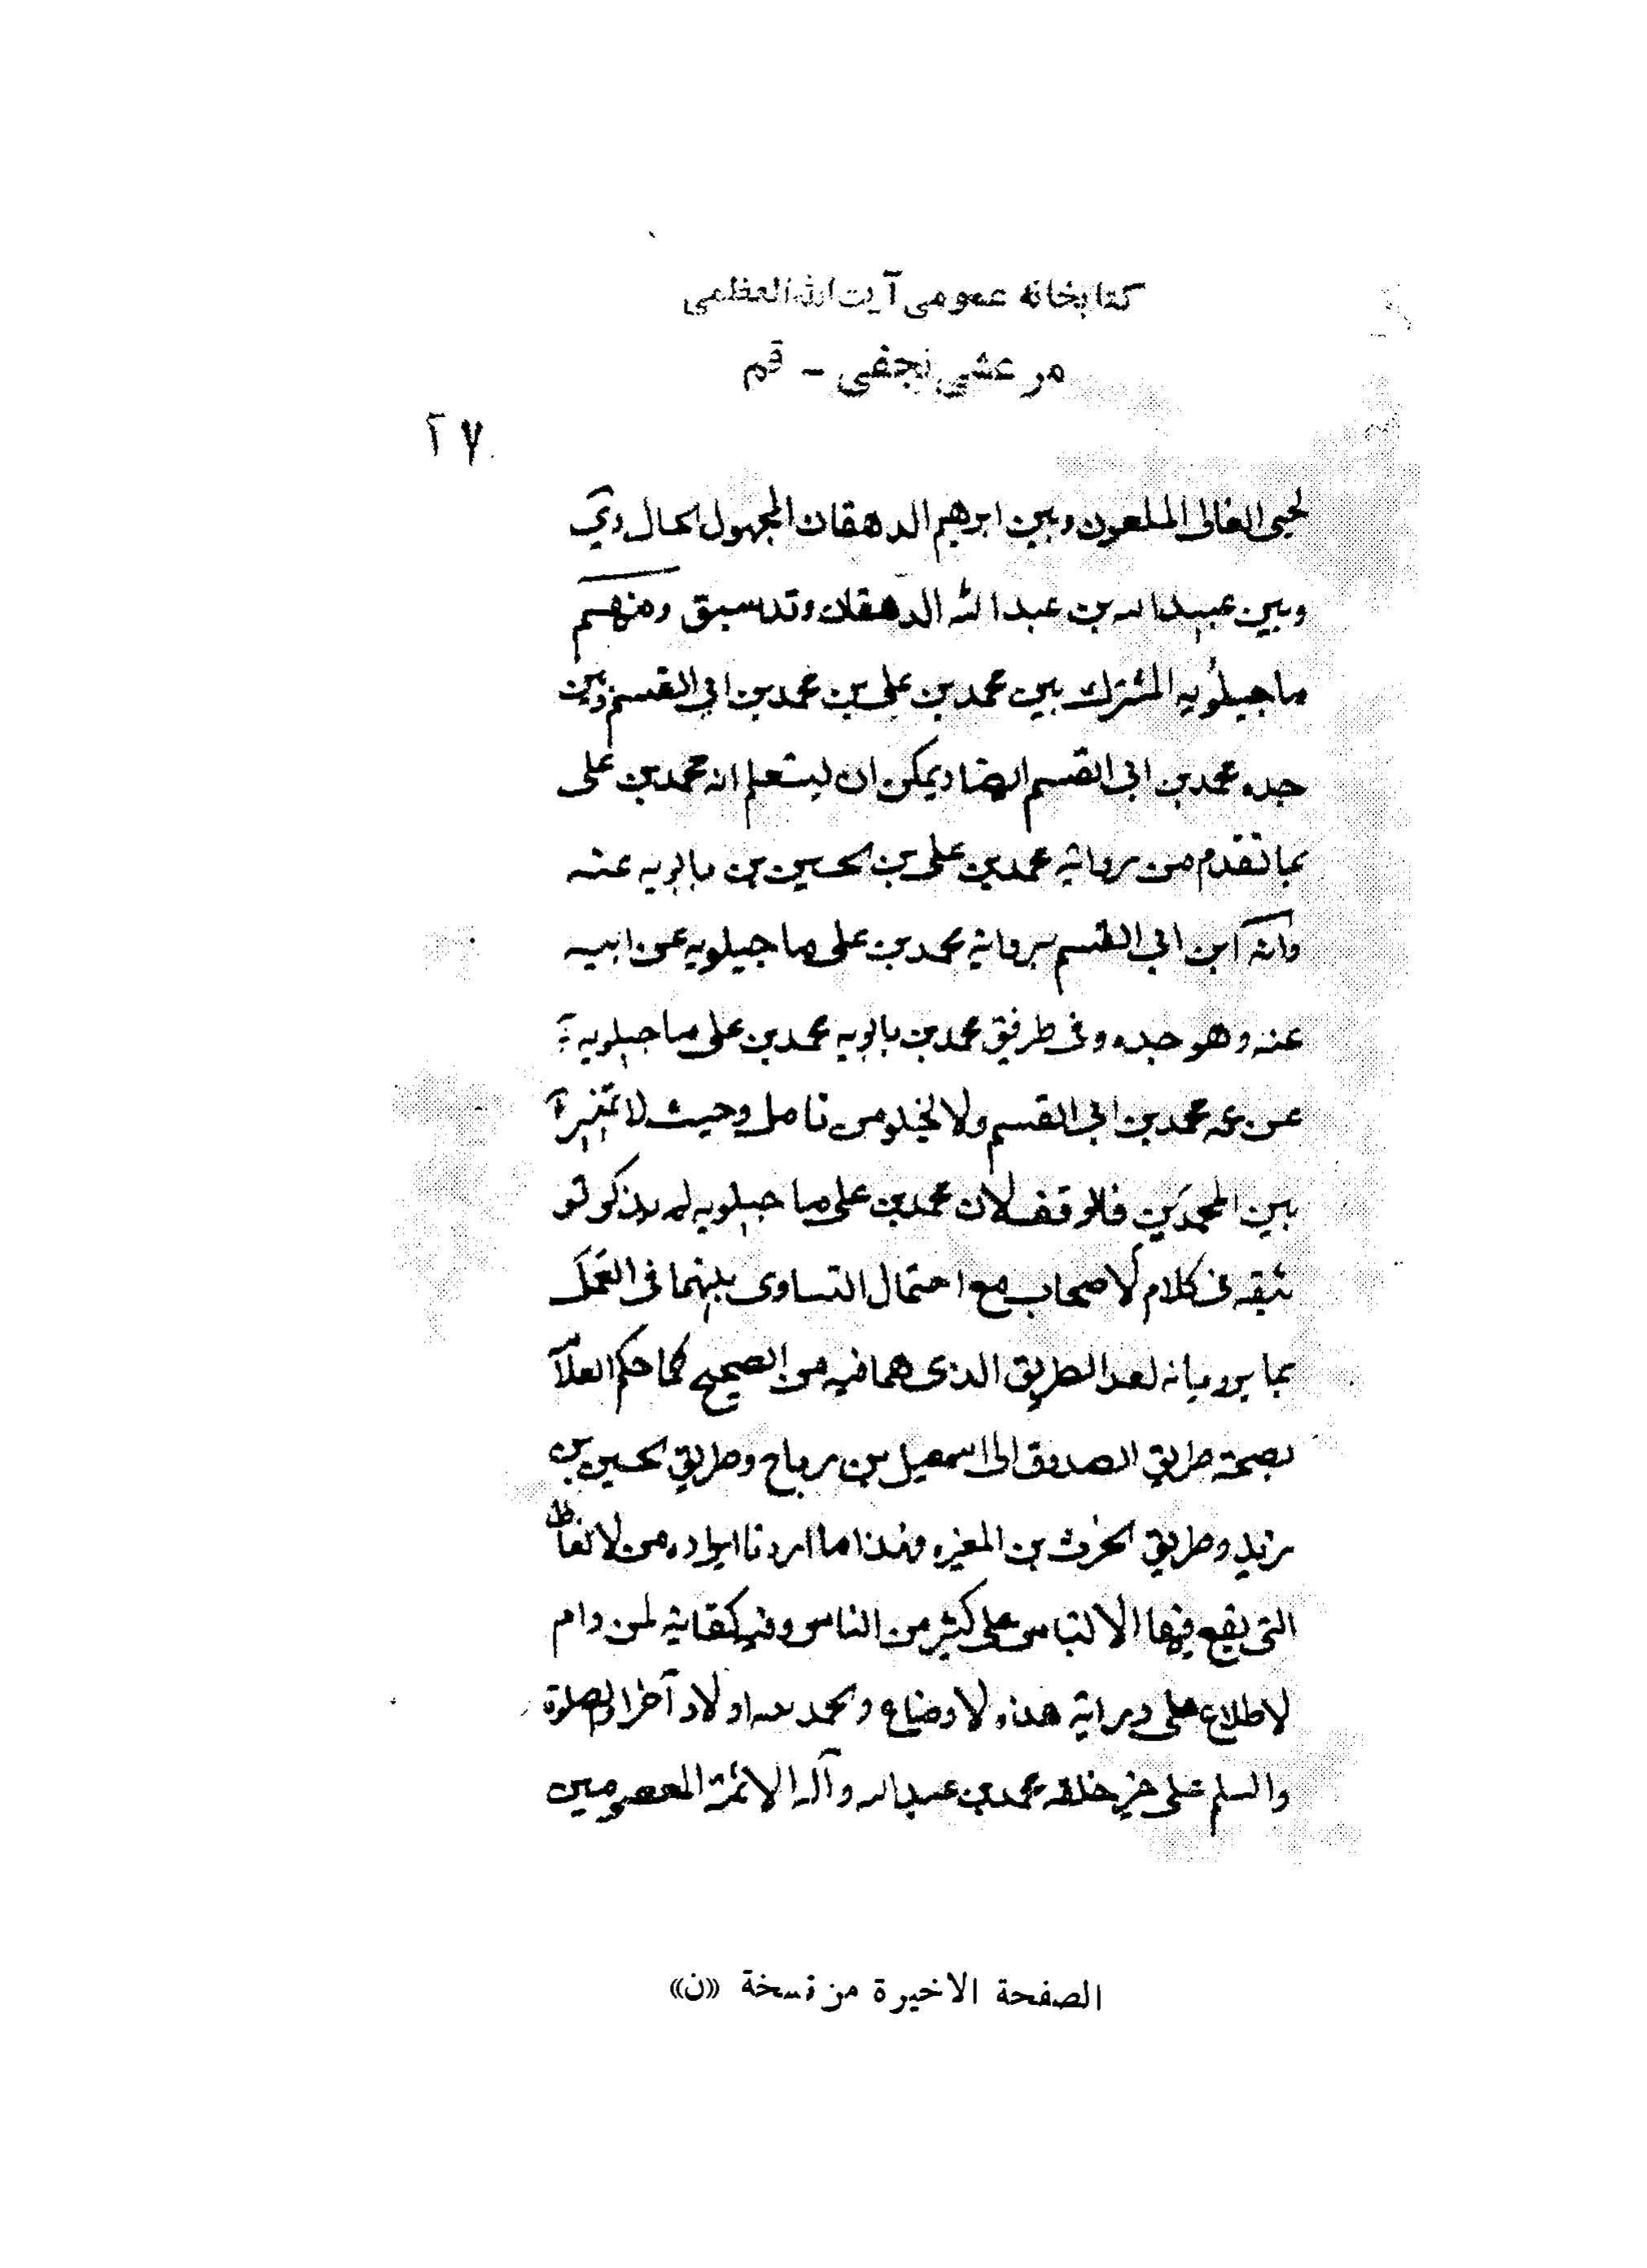 كتابخانه عمومى آيت الله العظمى
مرعشى نجفى - قم
٢٧
يحيى الغالى الملعون وبين ابرهيم الدهقان المجهول الحال
وبين عبيد الله بن عبد الله الدهقان وقد سبق ومنهم
ماجيلويه المشترك بين محمد بن على بن محمد بن ابى القسم وبين
جده محمد بن ابى القسم ايضا ويمكن ان يستعلم انه محمد بن على
بما تقدم من رواية محمد بن على بن الحسين بن بابويه عنه
وانه ابن ابى القسم برواية محمد بن على ماجيلويه عن ابيه
عنه وهو جده وفى طريق محمد بن بابويه محمد بن على ماجيلويه
عن عمه محمد بن ابى القسم ولا يخلو من تامل وحيث لا تميز
بين المحمدين فالوقف لان محمد بن على ماجيلويه لم يذكر تو
ثيقه فى كلام الاصحاب مع احتمال التساوى بينهما فى العمل
بما يرويانه لعد الطريق الذى هما فيه من الصحيح كما حكم العلا
بصحة طريق الصدوق الى اسمعيل بن رباح وطريق الحسين بن
زيد وطريق الحرث بن المغيره وهذا ما اردنا ايراده من الالفاظ
التى يقع فيها الالتباس على كثير من الناس وفيه كفاية لمن رام
الاطلاع على دراية هذه الاوضاع والحمد لله اولا وآخرا والصلوة
والسلم على خير خلقه محمد بن عبد الله وآله الائمة المعصومين
الصفحة الاخيرة من نسخة «ن»